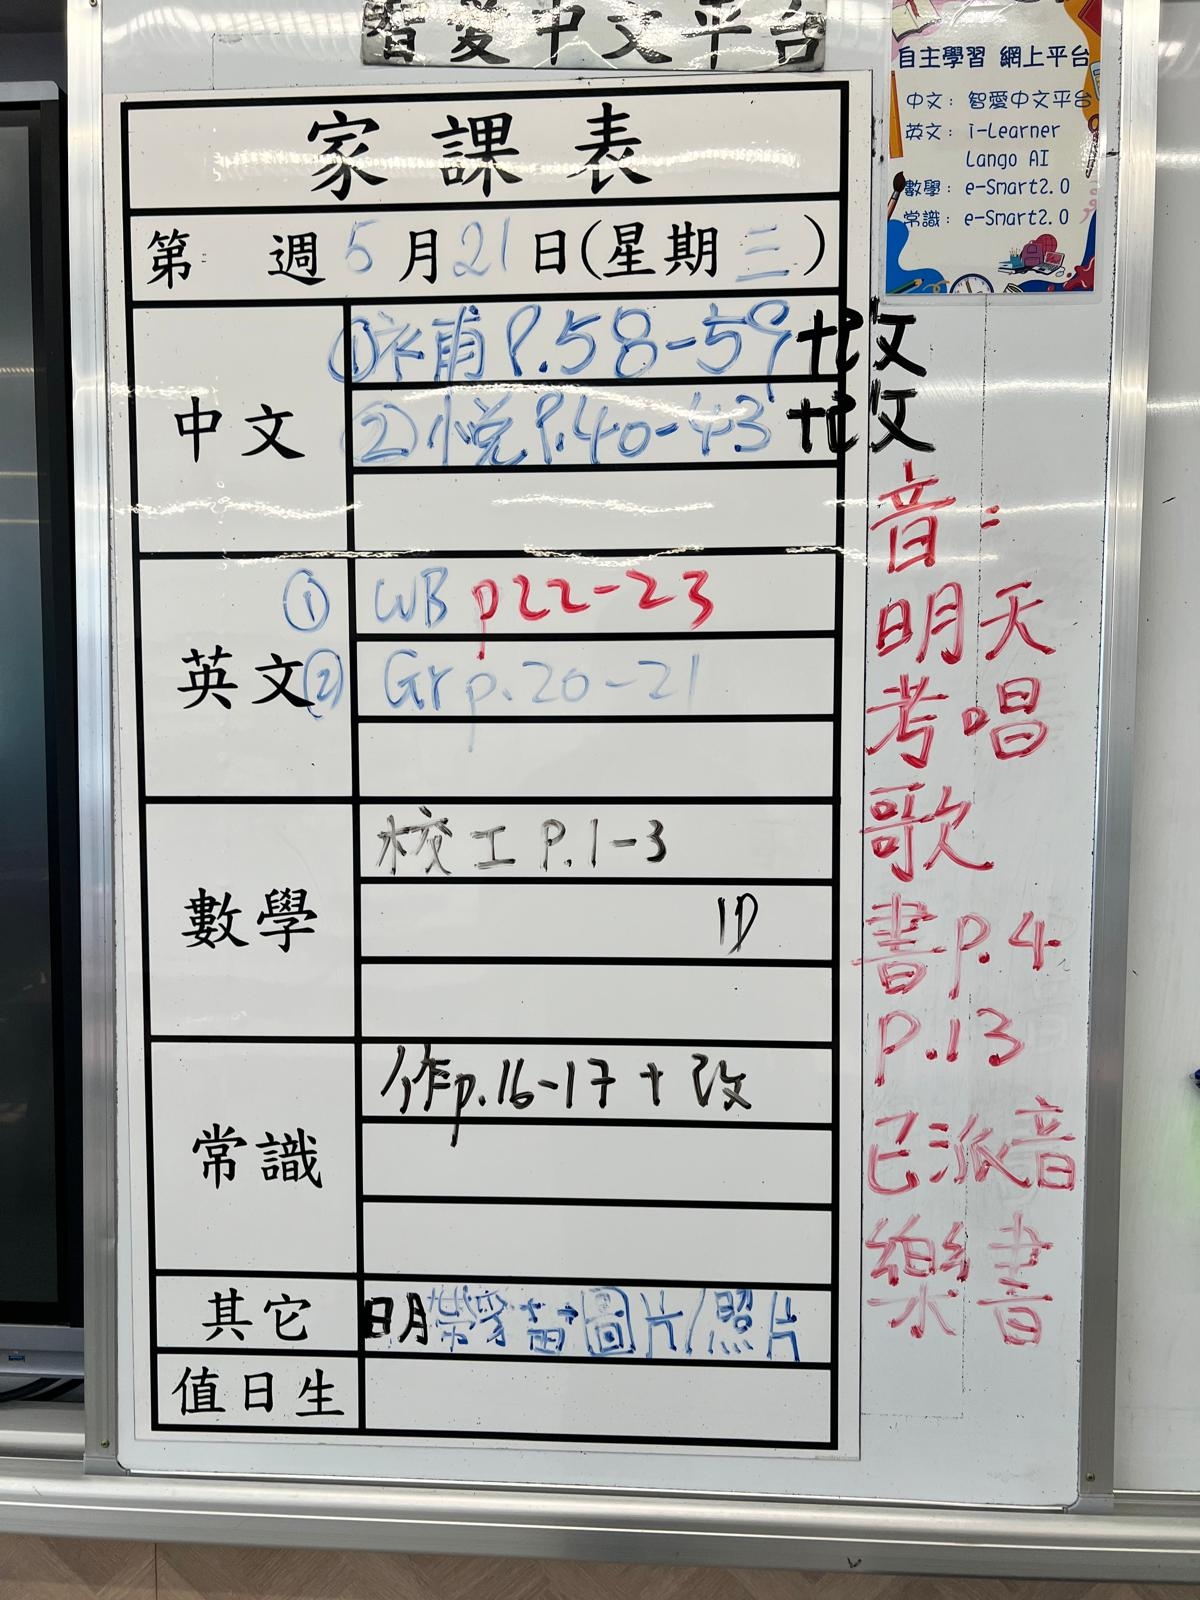 智愛中文平台
自主學習 網上平台
中文：智愛中文平台
英文：i-Learner
Lango AI
數學：e-Smart2.0
常識：e-Smart2.0
家課表
第 週 5月21日(星期三)
中文
①補P.58-59+改
②悅P.40-43+改
英文
① WB p22-23
② Gr p.20-21
數學
校工 P.1-3
常識
作p.16-17+改
其它
明帶 圖片/照片
值日生
音：
明天
考唱
歌
書p.4
P.13
已派音
樂書